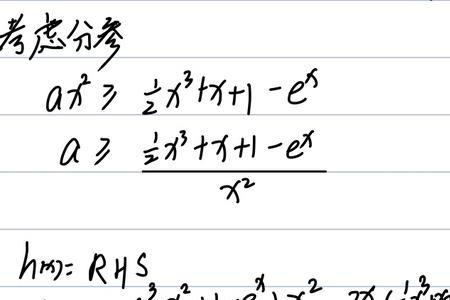 考虑分参
ax² ≥ ½x³+x+1-eˣ
a ≥ (½x³+x+1-eˣ)/x²
h(x)= RHS